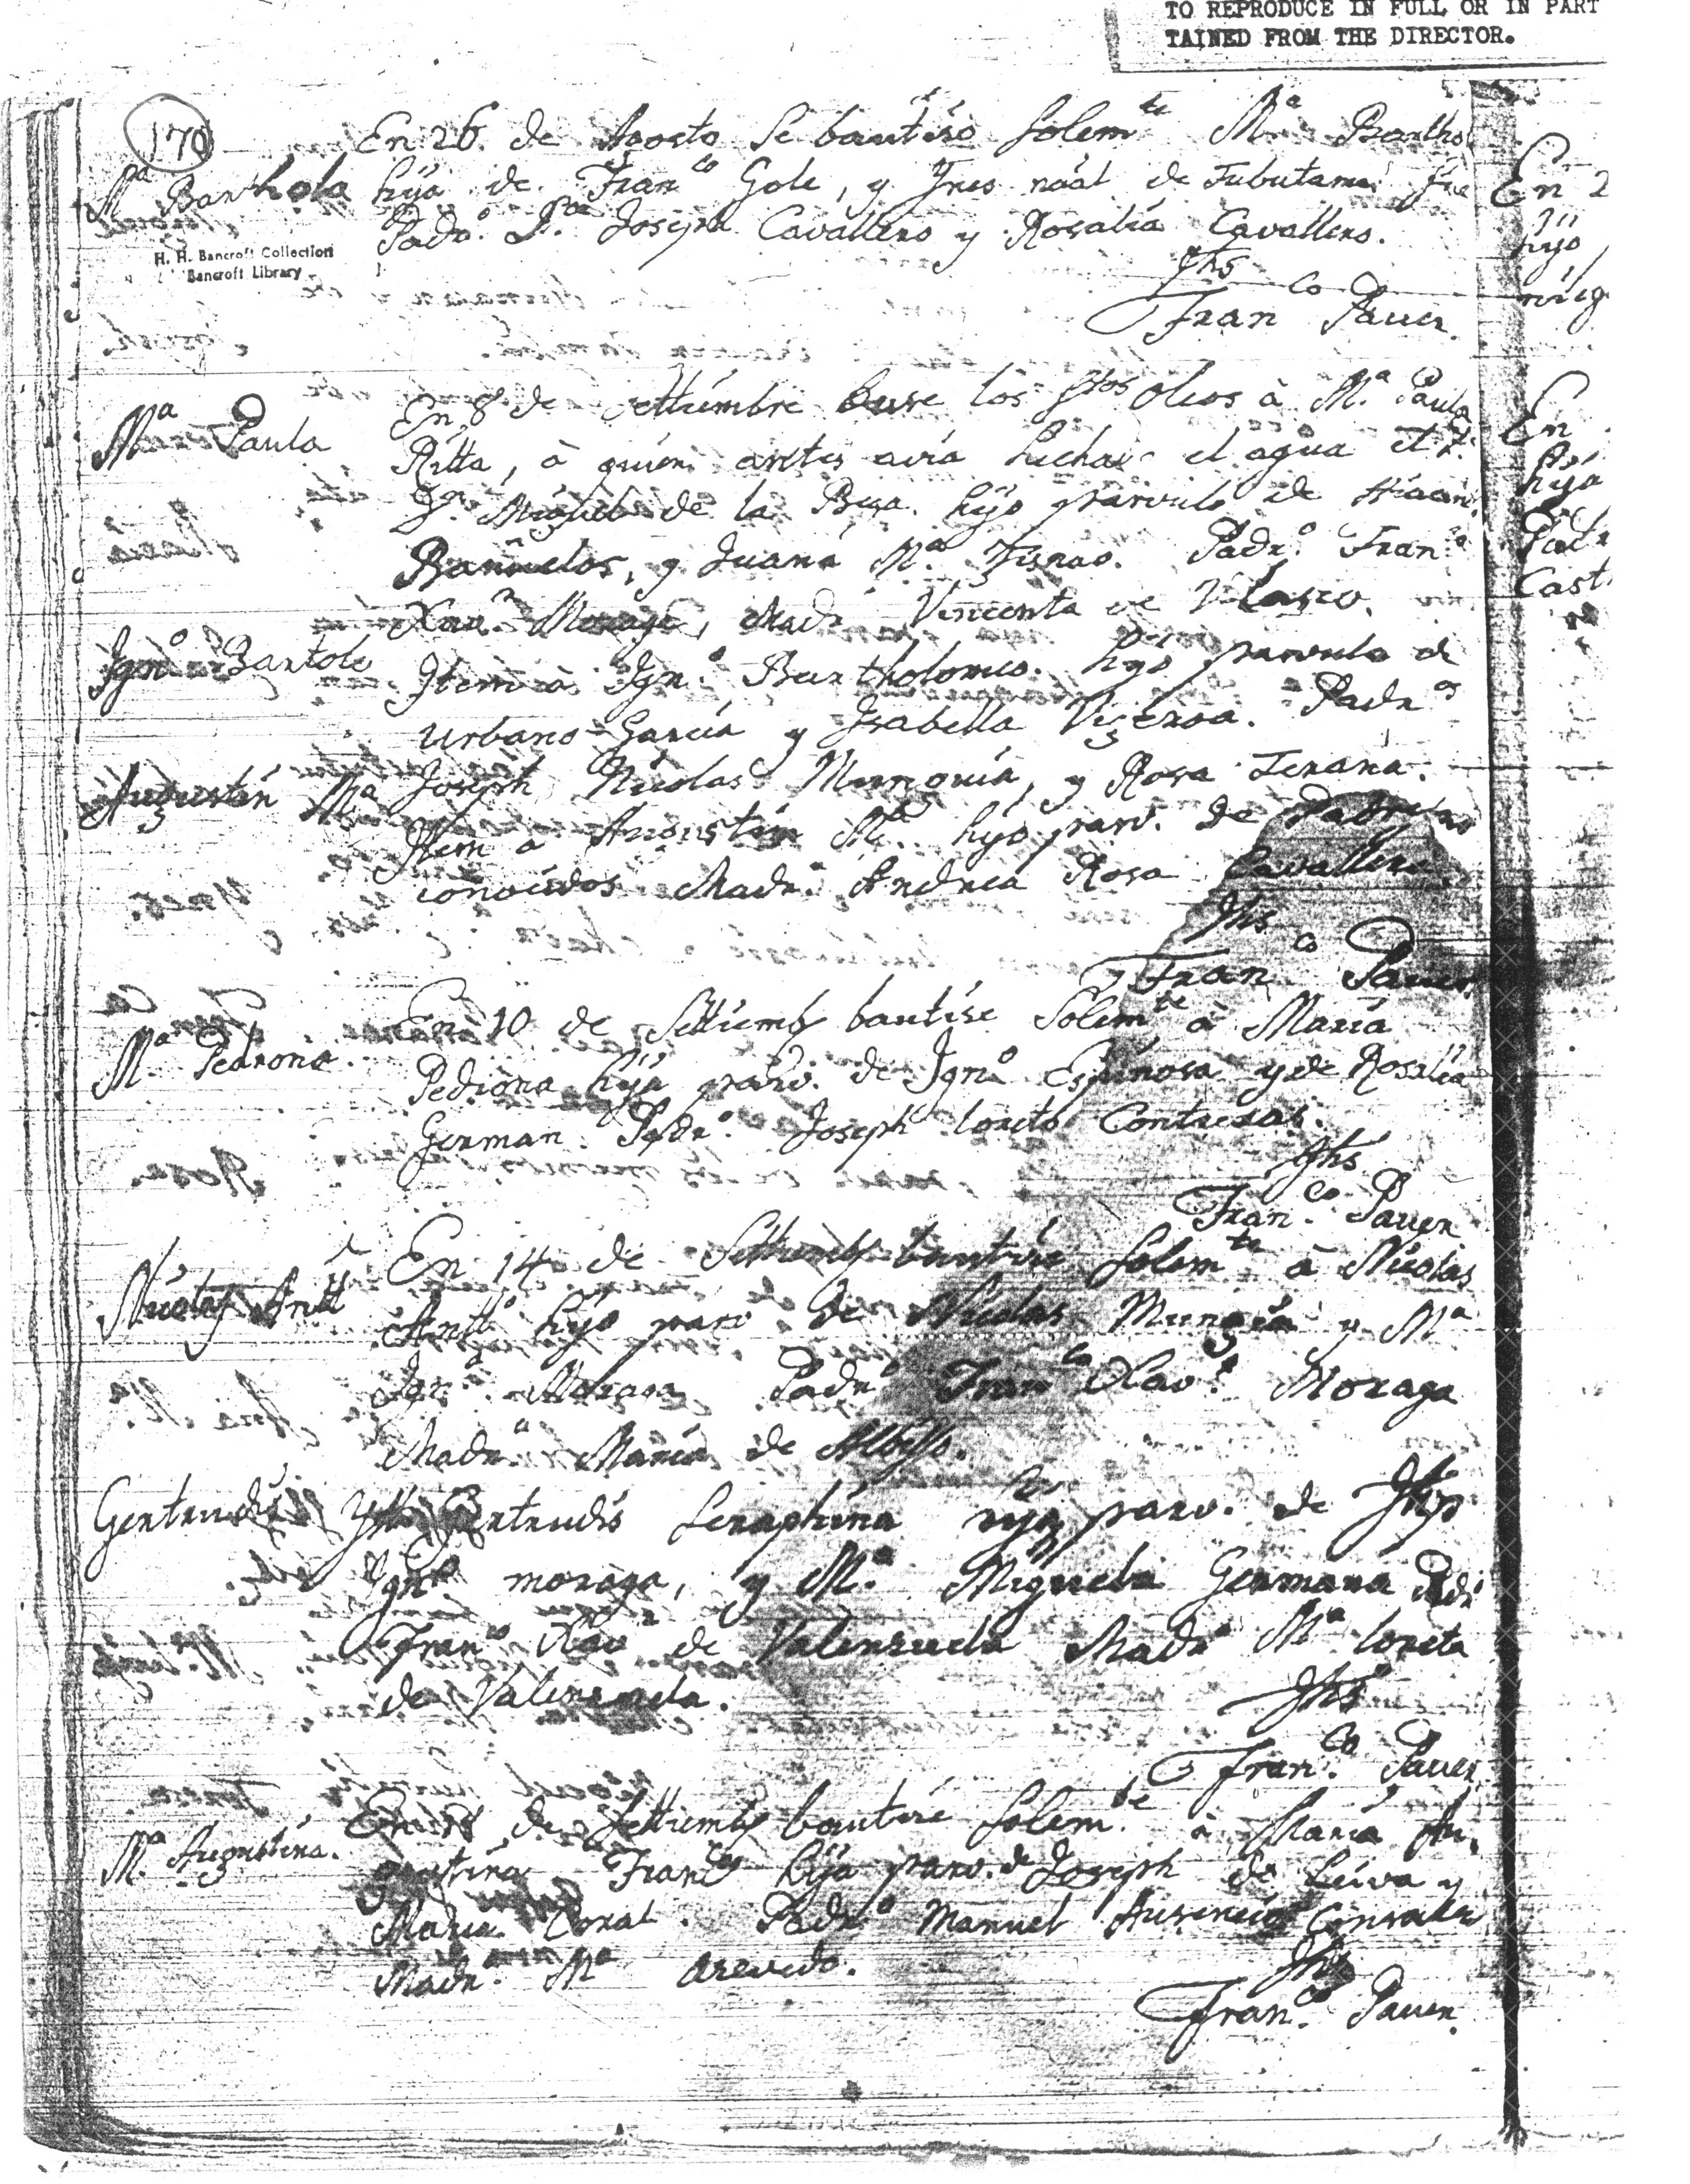 TO REPRODUCE IN FULL OR IN PART
TAINED FROM THE DIRECTOR.
170
En 26. de Agosto Se bautiso Solem.te M.a Bartho
M.a Barthola
hija de Fran.co Gole, y Ynes naál de Tubutama fue
Padr. Joseph Cavallero y Rosalia Cavallero.
H. H. Bancroft Collection
Bancroft Library
Jhs
Fran.co Pauer.
M.a Paula
En 8 de Settiembre los S.tos Oleos à M.a Paula
Ritta, à quien antes avia el agua el P.
Miguel de la hijo parvulo de
Bañuelos, y Juana M.a Padr.o Fran.co
Xav.r Moraga, Madr. Vincenta de Velasco.
Ign.o Bartolo
Item à Ign.o Bartholomeo. hijo parvulo de
Urbano Garcia y Isabella Padr.os
Joseph Nicolas Munguia, y Rosa Terana.
Augustin M.a
Item à Augustin M.a hijo parv. de Padres no
conocidos Madr.a Andrea Rosa Cavallero
Jhs
Fran.co Pauer
M.a Pedrona.
En 10 de Settiemb bautise Solem.te à Maria
Pedrona hija parv. de Ign.o Espinosa y de Rosalia
German Padr.o Joseph loreto Contreras.
Jhs
Fran.co Pauer
Nicolas Antt
En 14 de Settiemb bautise Solem.te à Nicolas
Antt.o hijo parv de Nicolas Munguia y M.a
Ign.a Moraga Padr.o Fran.co Xav.r Moraga
Madr.a Maria de
Gertrudis
Gertrudis Seraphina hija parv. de
Ign.o moraga, y M.a Miguela Germana Padr.
Fran.co Xav.r de Valenzuela Madr.a M.a loreta
de Valenzuela.
Jhs
Fran.co Pauer
M.a Augustina.
de Settiemb bautise Solem.te à Maria Au,
gustina Fran.ca hija parv. de Joseph de Leiva y
Maria Padr.o Manuel
Madr.a M.a
Jhs
Fran.co Pauer.
En 2
hijo
En
hija
Padr
Cast